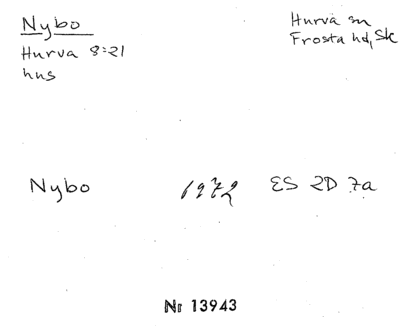 Nybo
Hurva 8:21
hus
Hurva sn
Frosta hd, Sk
Nybo 1972 ES 2D 7a
Nr 13943